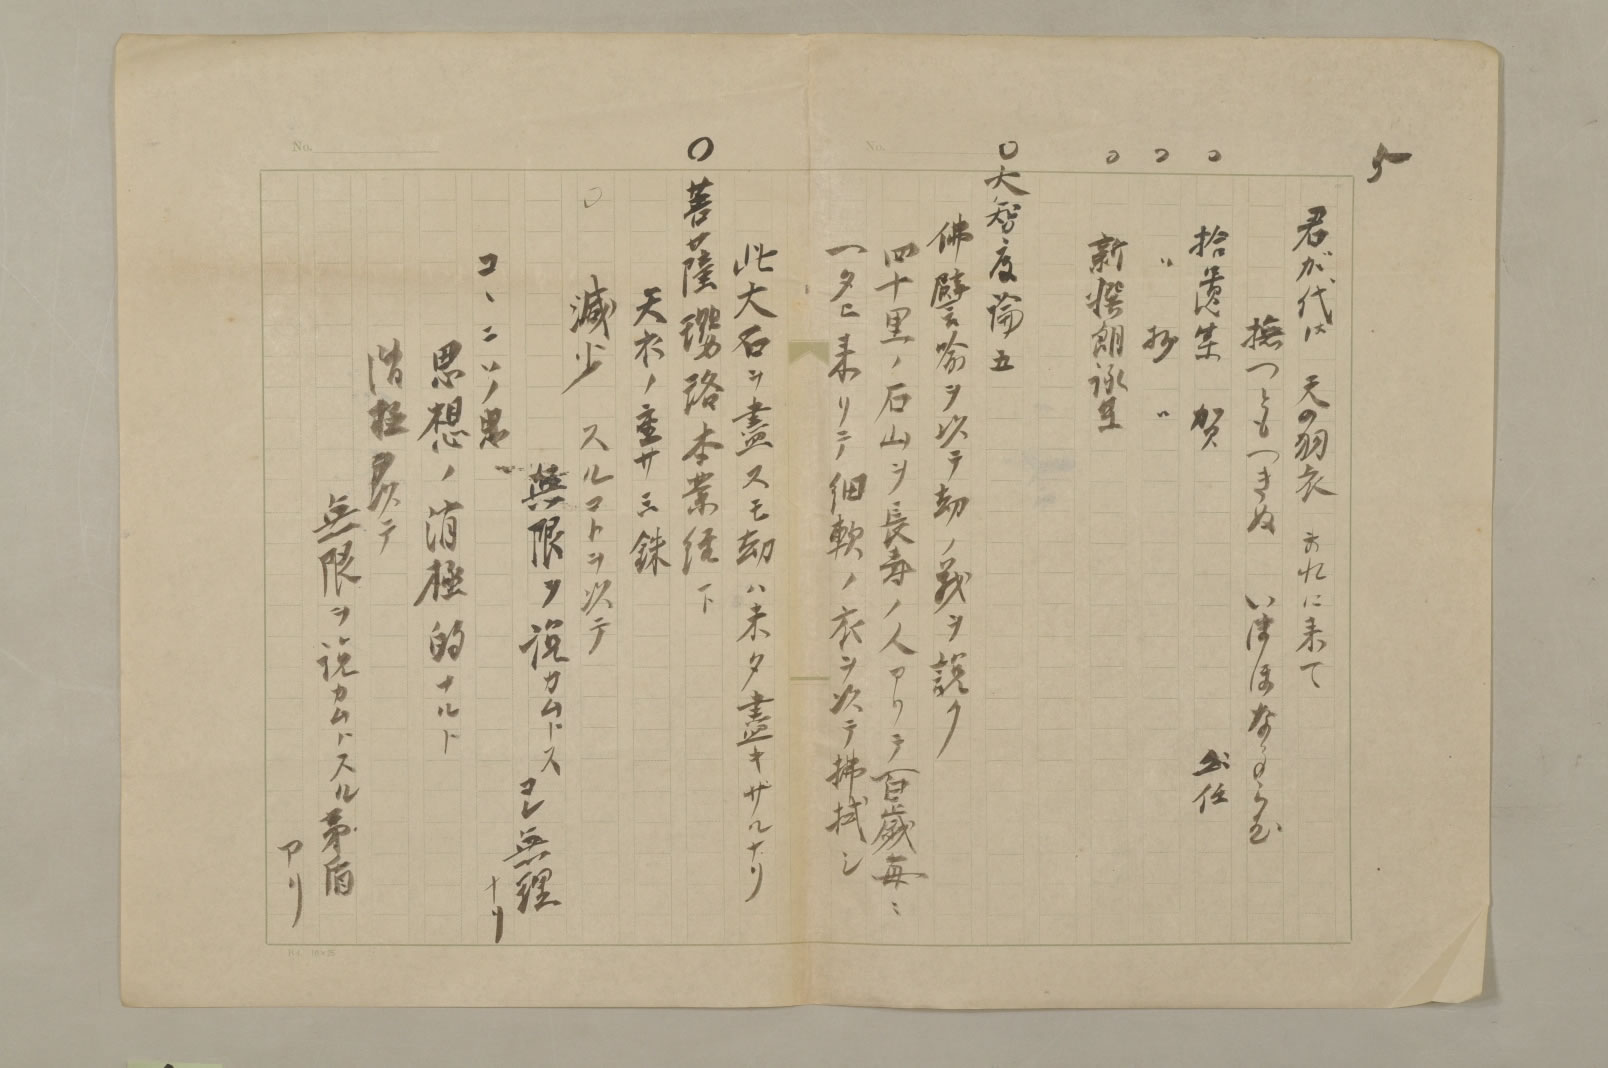 5
君が代は 天の羽衣 まれに来て
撫つともつきぬ いはほなるらむ
〇 拾遺集 賀
〇 〃 抄 〃
〇 新撰朗詠集
〇大智度論五
佛譬喩ヲ以テ劫ノ義ヲ説ク
四十里ノ石山ヲ長寿ノ人アリテ百歳毎ニ
一タヒ来リテ細軟ノ衣ヲ以テ拂拭シ
此大石ヲ盡スモ劫ハ未タ盡キザルナリ
〇菩薩瓔珞本業経下
天衣ノ重サ三銖
〇 減少スルコトヲ以テ
無限ヲ説カムトス コレ無理ナリ
コヽニソノ
思想ノ消極的ナルト
消極ヲ以テ
無限ヲ説カムトスル矛盾
アリ
No.
No.